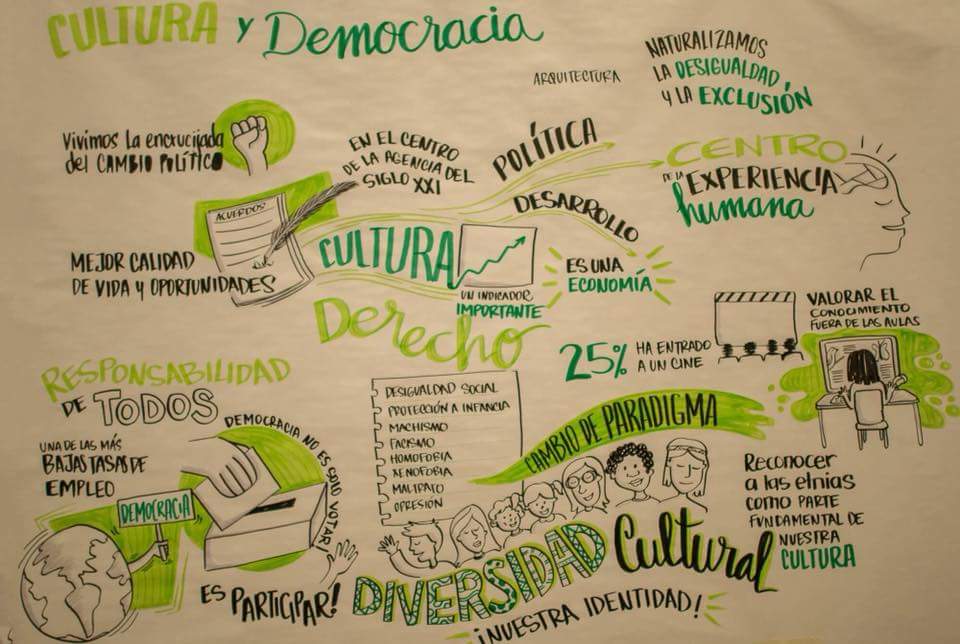 CULTURA Y Democracia
ARQUITECTURA
NATURALIZAMOS
LA DESIGUALDAD,
Y LA EXCLUSIÓN
Vivimos La encrucijada
del CAMBIO POLÍTICO
EN EL CENTRO
DE LA AGENCIA DEL
SIGLO XXI
POLÍTICA
DESARROLLO
CENTRO
DE LA EXPERIENCIA
humana
ACUERDOS
MEJOR CALIDAD
DE VIDA Y OPORTUNIDADES
CULTURA
UN INDICADOR
IMPORTANTE
ES UNA
ECONOMÍA
Derecho
25% HA ENTRADO
A UN CINE
VALORAR EL
CONOCIMIENTO
FUERA DE LAS AULAS
RESPONSABILIDAD
DE TODOS
UNA DE LAS MÁS
BAJAS TASAS DE
EMPLEO
DEMOCRACIA
DEMOCRACIA NO ES SOLO VOTAR!
ES PARTICIPAR!
DESIGUALDAD SOCIAL
PROTECCIÓN A INFANCIA
MACHISMO
FACISMO
HOMOFOBIA
XENOFOBIA
MALTRATO
OPRESIÓN
CAMBIO DE PARADIGMA
DIVERSIDAD Cultural
¡NUESTRA IDENTIDAD!
Reconocer
a las etnias
como PARTE
FUNDAMENTAL DE
NUESTRA
CULTURA